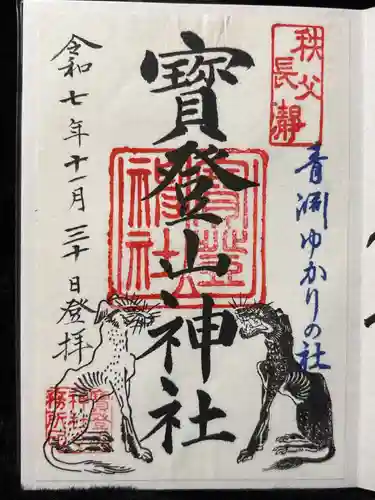 秩父
長瀞
青渊ゆかりの社
寳登山神社
寳登山
神社
令和七年十一月三十日登拝
寳登山
神社社
務所印